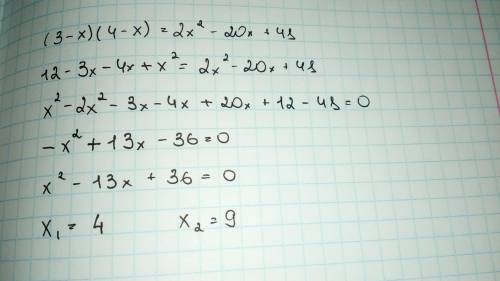 (3-x)(4-x) = 2x² - 20x + 48
12 - 3x - 4x + x² = 2x² - 20x + 48
x² - 2x² - 3x - 4x + 20x + 12 - 48 = 0
- x² + 13x - 36 = 0
x² - 13x + 36 = 0
x₁ = 4 x₂ = 9